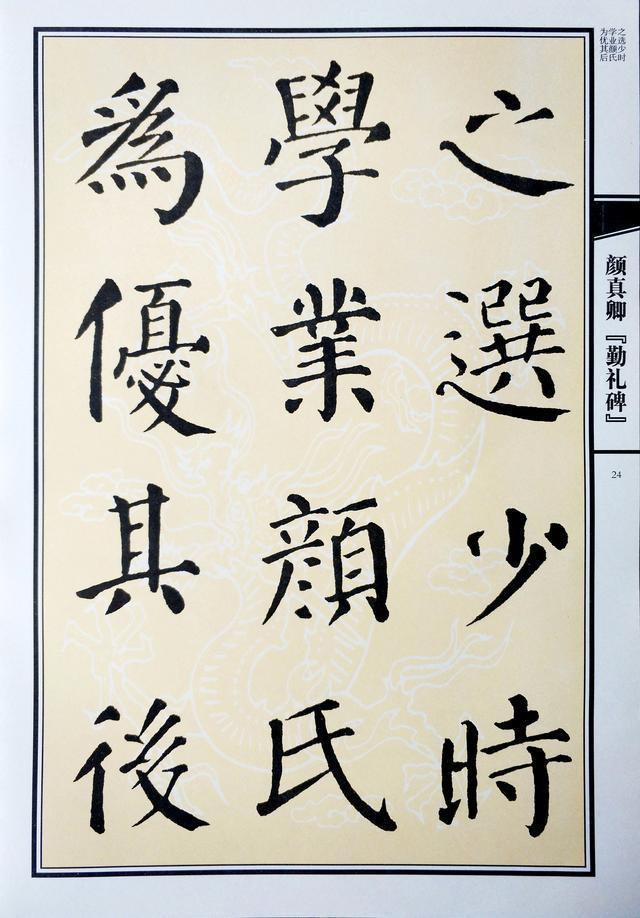 之選少時
學業顔氏
爲優其後
之选少时
学业颜氏
为优其后
颜真卿『勤礼碑』
24